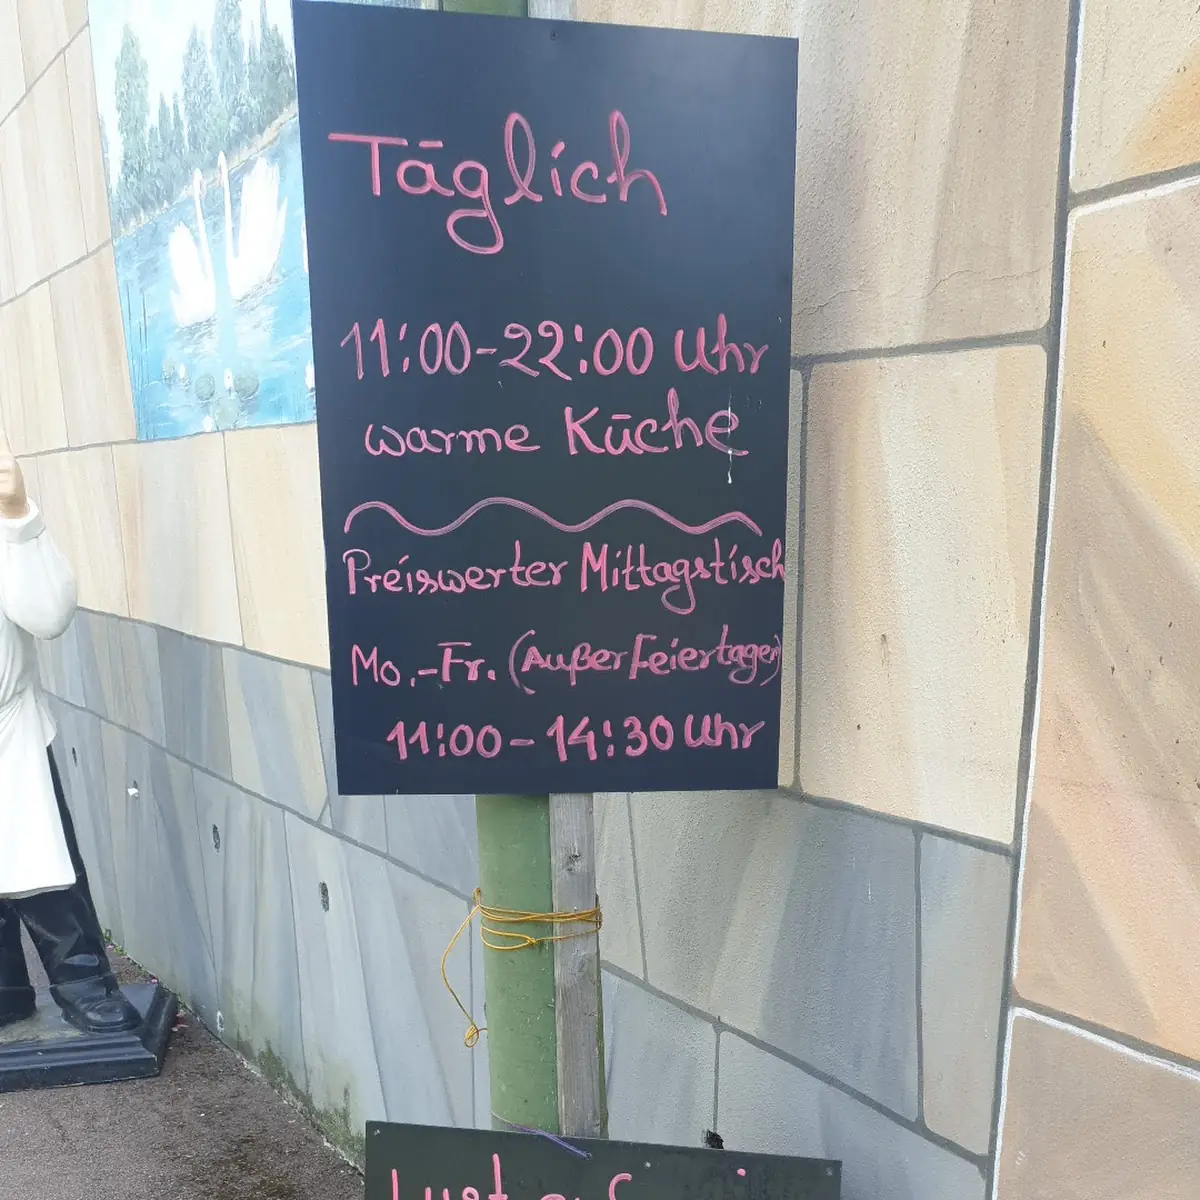 Täglich
11:00-22:00 Uhr
warme Küche
Preiswerter Mittagstisch
Mo.-Fr. (Außer Feiertagen)
11:00-14:30 Uhr
Lust auf